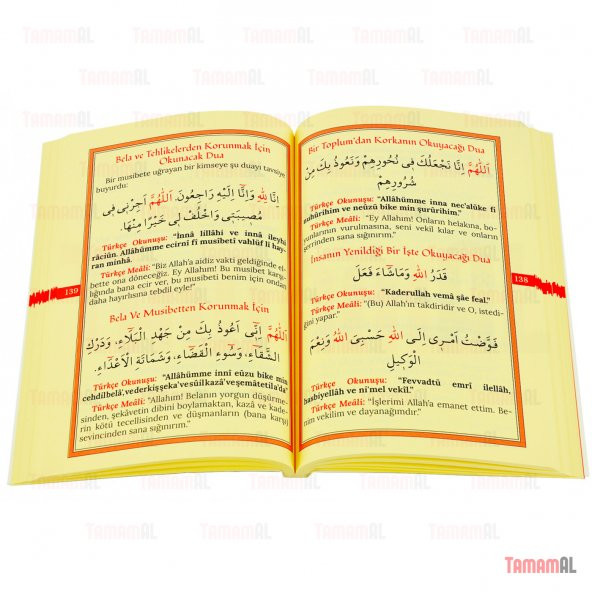 Bir Toplum'dan Korkanın Okuyacağı Dua
اَللّٰهُمَّ اِنَّا نَجْعَلُكَ فِى نُحُورِهِمْ وَنَعُوذُ بِكَ مِنْ
شُرُورِهِمْ
Türkçe Okunuşu: "Allâhümme inna nec'alüke fî
nuhûrihim ve neûzü bike min şurûrihim."
Türkçe Meâli: "Ey Allahım! Onların helakına, bo-
yunlarının vurulmasına, seni vekil kılar ve onların
şerrinden sana sığınırım."
İnsanın Yenildiği Bir İşte Okuyacağı Dua
قَدَرُ اللهِ وَمَاشَاءَ فَعَلَ
Türkçe Okunuşu: "Kaderullah vemâ şâe feal."
Türkçe Meâli: "(Bu) Allah'ın takdiridir ve O, istedi-
ğini yapar."
فَوَّضْتُ اَمْرِى اِلَى اللهِ حَسْبِىَ اللهُ وَنِعْمَ
الْوَكِيلُ
Türkçe Okunuşu: "Fevvadtü emrî ilellâh,
hasbiyellah ve ni'mel vekîl."
Türkçe Meâli: "İşlerimi Allah'a emanet ettim. Be-
nim vekilim ve dayanağımdır."
138
Bela ve Tehlikelerden Korunmak İçin
Okunacak Dua
Bir musibete uğrayan bir kimseye şu duayı tavsiye
buyurdu:
اِنَّا لِلّٰهِ وَاِنَّا اِلَيْهِ رَاجِعُونَ. اَللّٰهُمَّ اٰجِرْنِى فِى
مُصِيبَتِى وَاخْلُفْ لِى خَيْرًا مِنْهَا.
Türkçe Okunuşu: "İnnâ lillâhi ve innâ ileyhi
râciûn. Allâhümme ecirnî fî musîbetî vahlüf lî hay-
ran minhâ."
Türkçe Meâli: "Biz Allah'a aidiz vakti geldiğinde el-
bette ona döneceğiz. Ey Allahım! Bu musibet karşı-
lığında bana ecir ver, bu musibeti benim için ondan
daha hayırlısına tebdil eyle!"
Bela Ve Musibetten Korunmak İçin
اَللّٰهُمَّ اِنِّى اَعُوذُ بِكَ مِنْ جَهْدِ الْبَلَاءِ، وَدَرْكِ
الشَّقَاءِ، وَسُوءِ الْقَضَاءِ، وَشَمَاتَةِ الْاَعْدَاءِ.
Türkçe Okunuşu: "Allâhümme innî eûzu bike min
cehdilbelâ', vederkişşeka' vesûilkazâ' veşemâtetila'dâ"
Türkçe Meâli: "Allahım! Belanın yorgun düşürme-
sinden, şekâvetin dibini boylamaktan, kazâ ve kade-
rin kötü tecellisinden ve düşmanların (bana karşı)
sevincinden sana sığınırım."
139
TAMAMAL